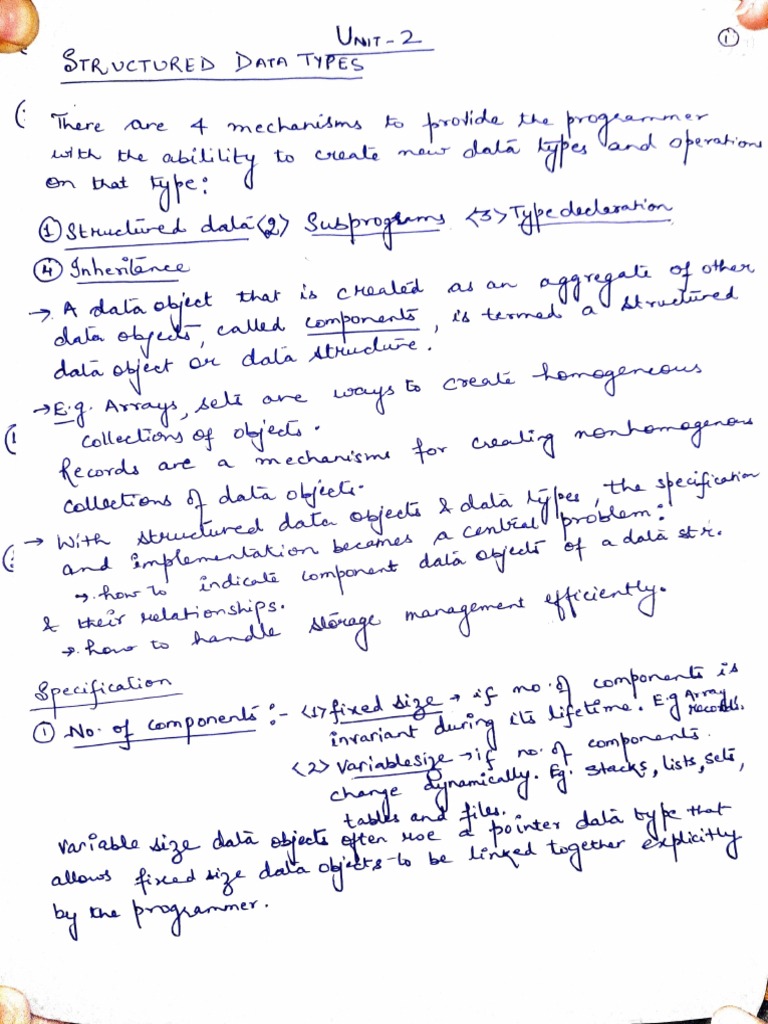 UNIT-2
①
STRUCTURED DATA TYPES
There are 4 mechanisms to provide the programmer
with the abilility to create new data types and operations
on that type:
① Structured data <2> Subprograms <3> Type declaration
④ Inheritence
→ A data object that is created as an aggregate of other
data objects, called components, is termed a structured
data object or data structure.
→ E.g. Arrays, sets are ways to create homogeneous
collections of objects.
Records are a mechanisms for creating nonhomogenous
collections of data objects.
→ With structured data objects & data types, the specification
and implementation becomes a central problem:
→ how to indicate component data objects of a data str.
& their relationships.
→ how to handle storage management efficiently.
Specification
① No. of components :- <1> fixed size → if no. of components is
invariant during its lifetime. E.g Array
records.
<2> Variable size → if no. of components
change dynamically. Eg. Stacks, lists, sets,
tables and files.
Variable size data objects often use a pointer data type that
allows fixed size data objects to be linked together explicitly
by the programmer.